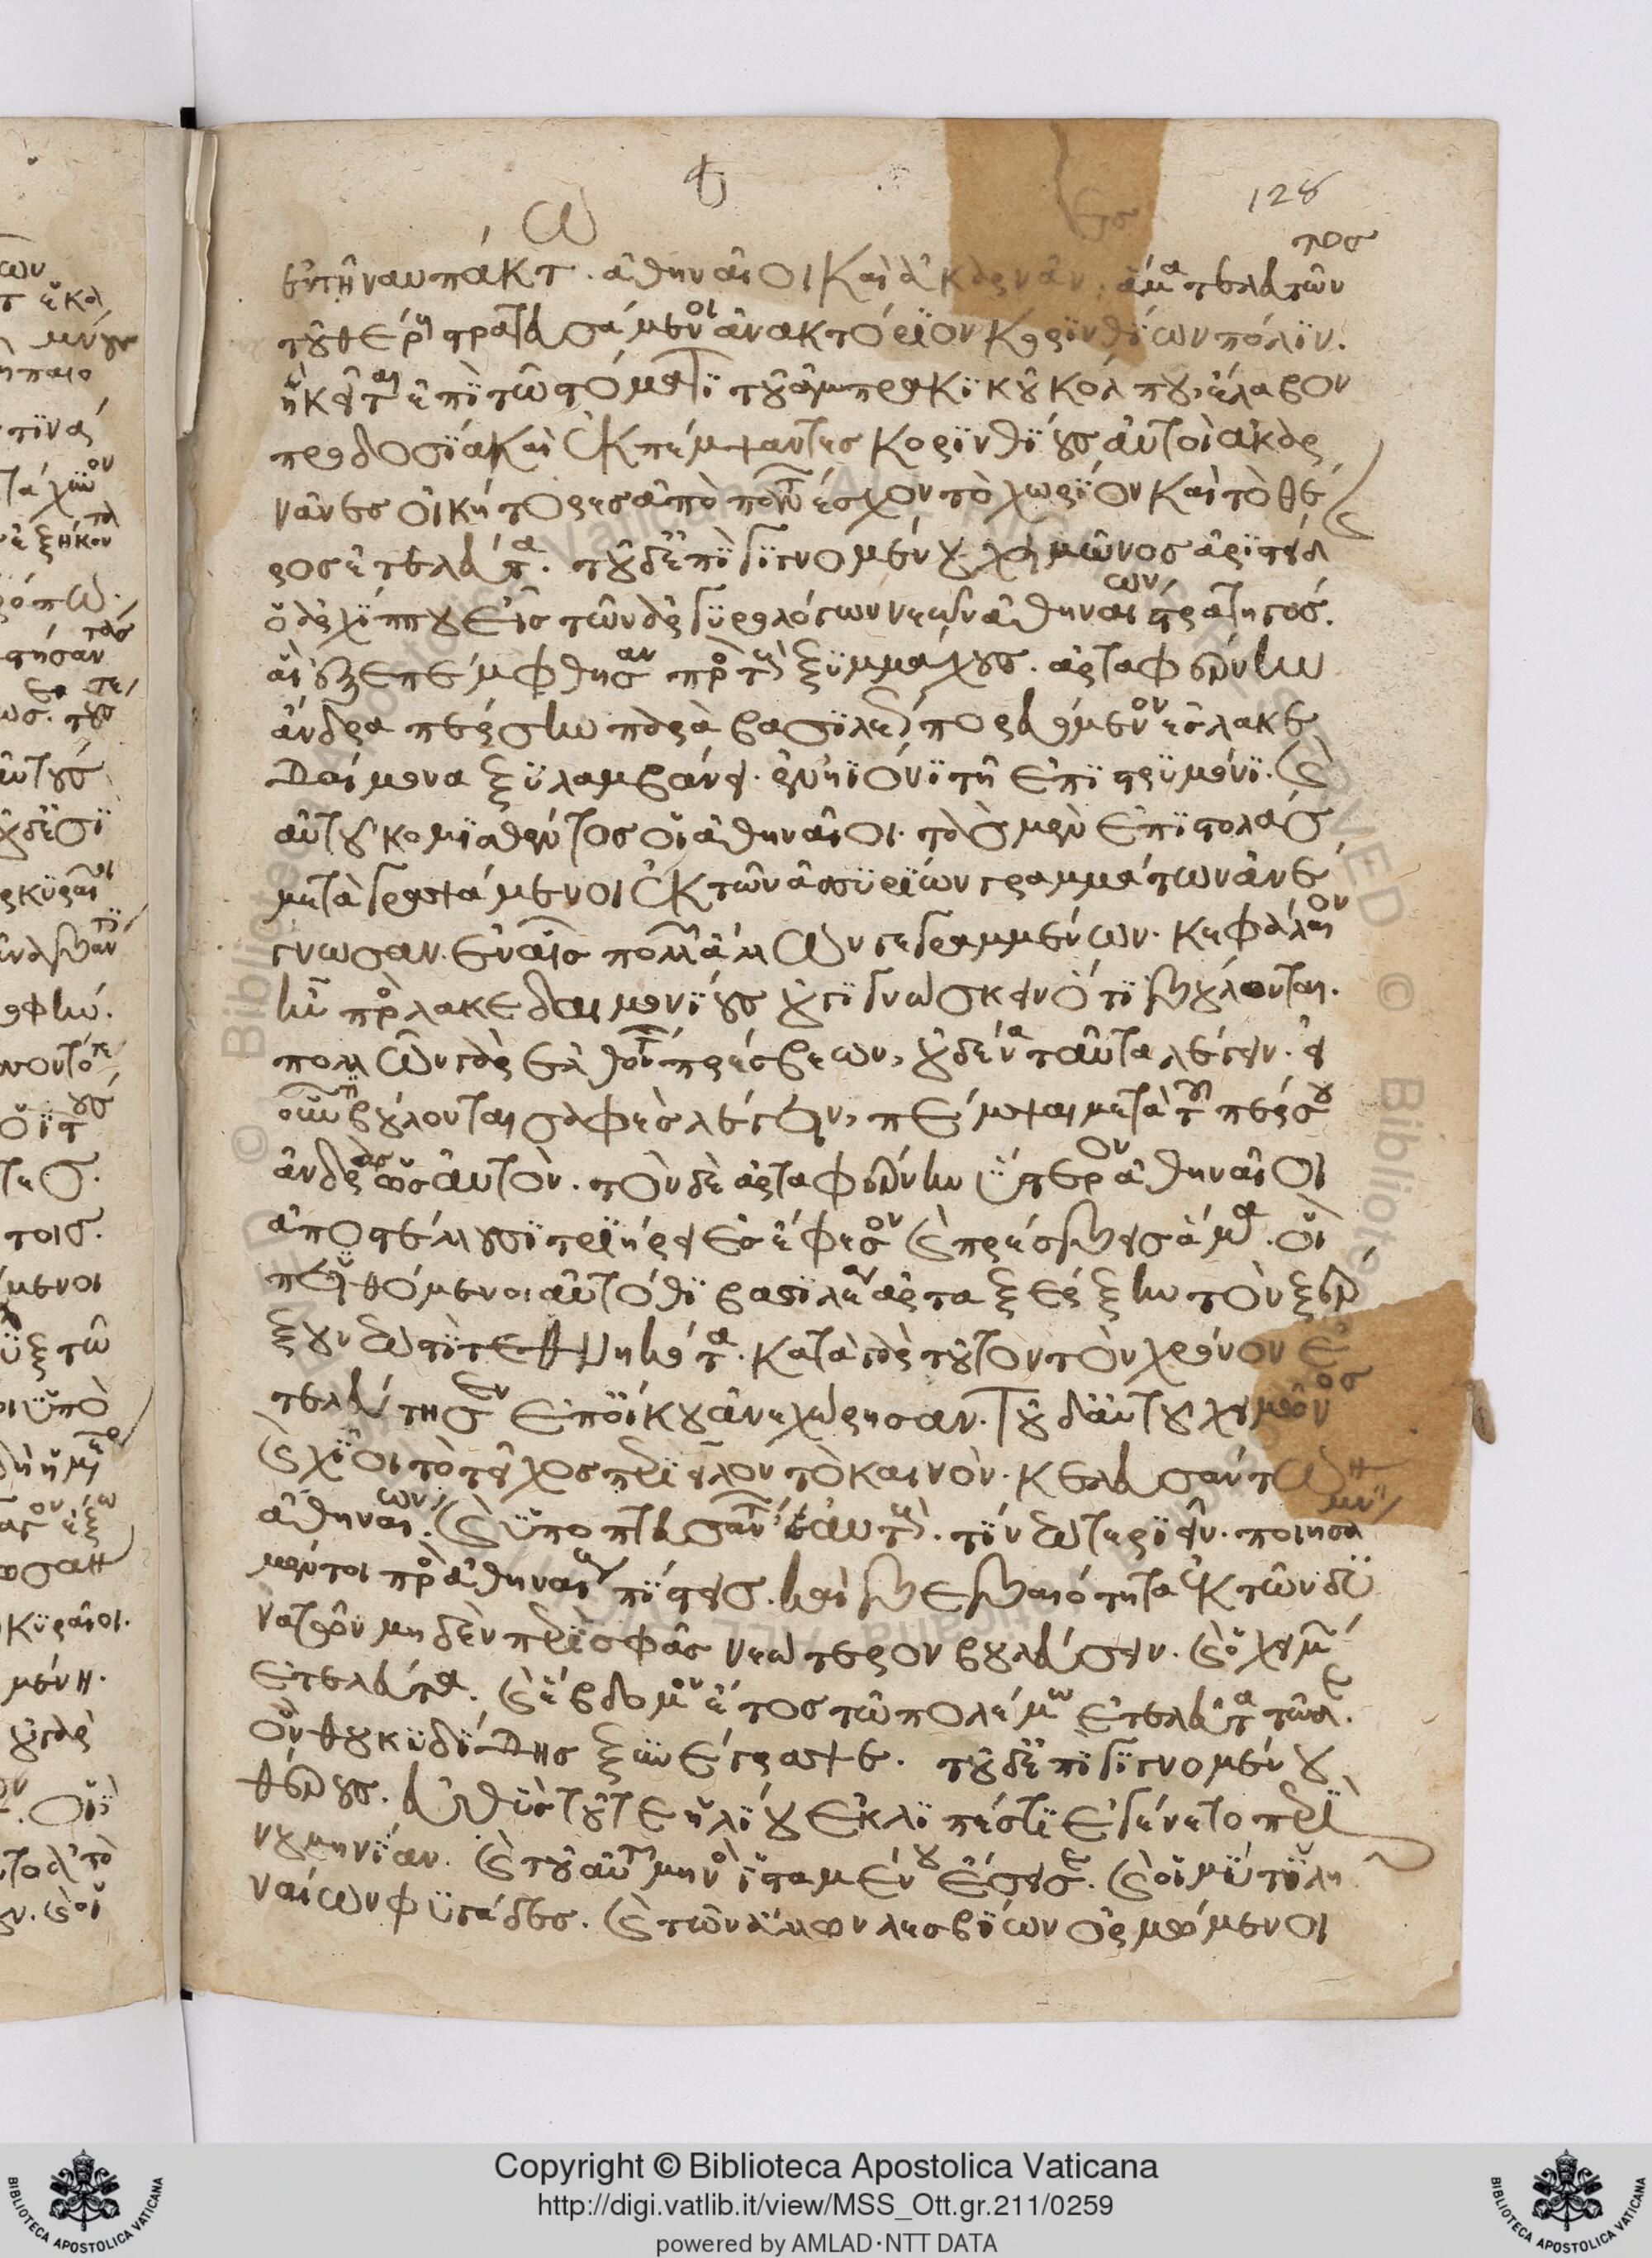 128
ἐν τῆ ναυπάκτω. ἀθηναῖοι καὶ ἀκαρνᾶνες. ἅμα τελευτῶντος
τοῦ θέρους στρατευσάμενοι ἀνακτόριον κορινθίων πόλιν.
ἣ κεῖται ἐπὶ τῶ στόματι τοῦ ἀμπρακικοῦ κόλπου, ἔλαβον
προδοσία καὶ ἐκπέμψαντες κορινθίους αὐτοὶ ἀκαρ
νᾶνες οἰκήτορες ἀπὸ πάντων ἔσχον τὸ χωρίον καὶ τὸ θέ
ρος ἐτελεύτα. τοῦ δ' ἐπιγιγνομένου χειμῶνος ἀριστείδ
ὁ ἀρχίππου εἷς τῶν ἀργυρολόγων νεῶν ἀθηναίων στρατηγός.
αἳ ἐξεπέμφθησαν πρὸς τοὺς ξυμμάχους. ἀρταφέρνην
ἄνδρα πέρσην παρὰ βασιλέως πορευόμενον ἐς λακε
δαίμονα ξυλλαμβάνει. ἐν ἠιόνι τῆ ἐπὶ στρυμόνι. καὶ
αὐτοῦ κομισθέντος οἱ ἀθηναῖοι. τὰς μὲν ἐπιστολὰς
μεταγραψάμενοι ἐκ τῶν ἀσσυρίων γραμμάτων ἀνέ
γνωσαν. ἐν αἷς πολλῶν ἄλλων γεγραμμένων. κεφάλαιον
ἦν πρὸς λακεδαιμονίους οὐ γιγνώσκειν ὅτι βούλονται.
πολλῶν γὰρ ἐλθόντων πρέσβεων, οὐδένα ταῦτα λέγειν. εἰ
οὖν βούλονται σαφὲς λέγειν, πέμψαι μετὰ τοῦ πέρσου
ἄνδρας ὡς αὐτόν. τὸν δὲ ἀρταφέρνην ὕστερον ἀθηναῖοι
ἀποστέλλουσι τριήρει ἐς ἔφεσον καὶ πρέσβεις ἅμα. οἳ
πυθόμενοι αὐτόθι βασιλέα ἀρταξέρξην τὸν ξέρ
ξου νεωστὶ τεθνηκότα. κατὰ γὰρ τοῦτον τὸν χρόνον ἐ
τελεύτησεν ἐπ' οἴκου ἀνεχώρησαν. τοῦ δ' αὐτοῦ χειμῶνος
καὶ χῖοι τὸ τεῖχος περιεῖλον τὸ καινόν. κελευσάντων
ἀθηναίων. καὶ ὑποπτευσάντων ἐς αὐτούς. τὶ νεωτεριεῖν. ποιησά
μενοι μέντοι πρὸς ἀθηναίους πίστεις. καὶ βεβαιότητα ἐκ τῶν δυ
νατῶν μηδὲν περὶ σφᾶς νεώτερον βουλεύσειν. καὶ ὁ χειμὼν
ἐτελεύτα. καὶ ἕβδομον ἔτος τῶ πολέμω ἐτελεύτα τῶδε.
ὃν θουκυδίδης ξυνέγραψε. τοῦ δ' ἐπιγιγνομένου
θέρους. εὐθὺς τοῦ τε ἡλίου ἐκλιπές τι ἐγένετο περὶ
νουμηνίαν. καὶ τοῦ αὐτοῦ μηνὸς ἱσταμένου ἔσεισε. καὶ οἱ μυτιλη
ναίων φυγάδες. καὶ τῶν ἄλλων λεσβίων ὁρμώμενοι
Copyright © Biblioteca Apostolica Vaticana
http://digi.vatlib.it/view/MSS_Ott.gr.211/0259
powered by AMLAD·NTT DATA